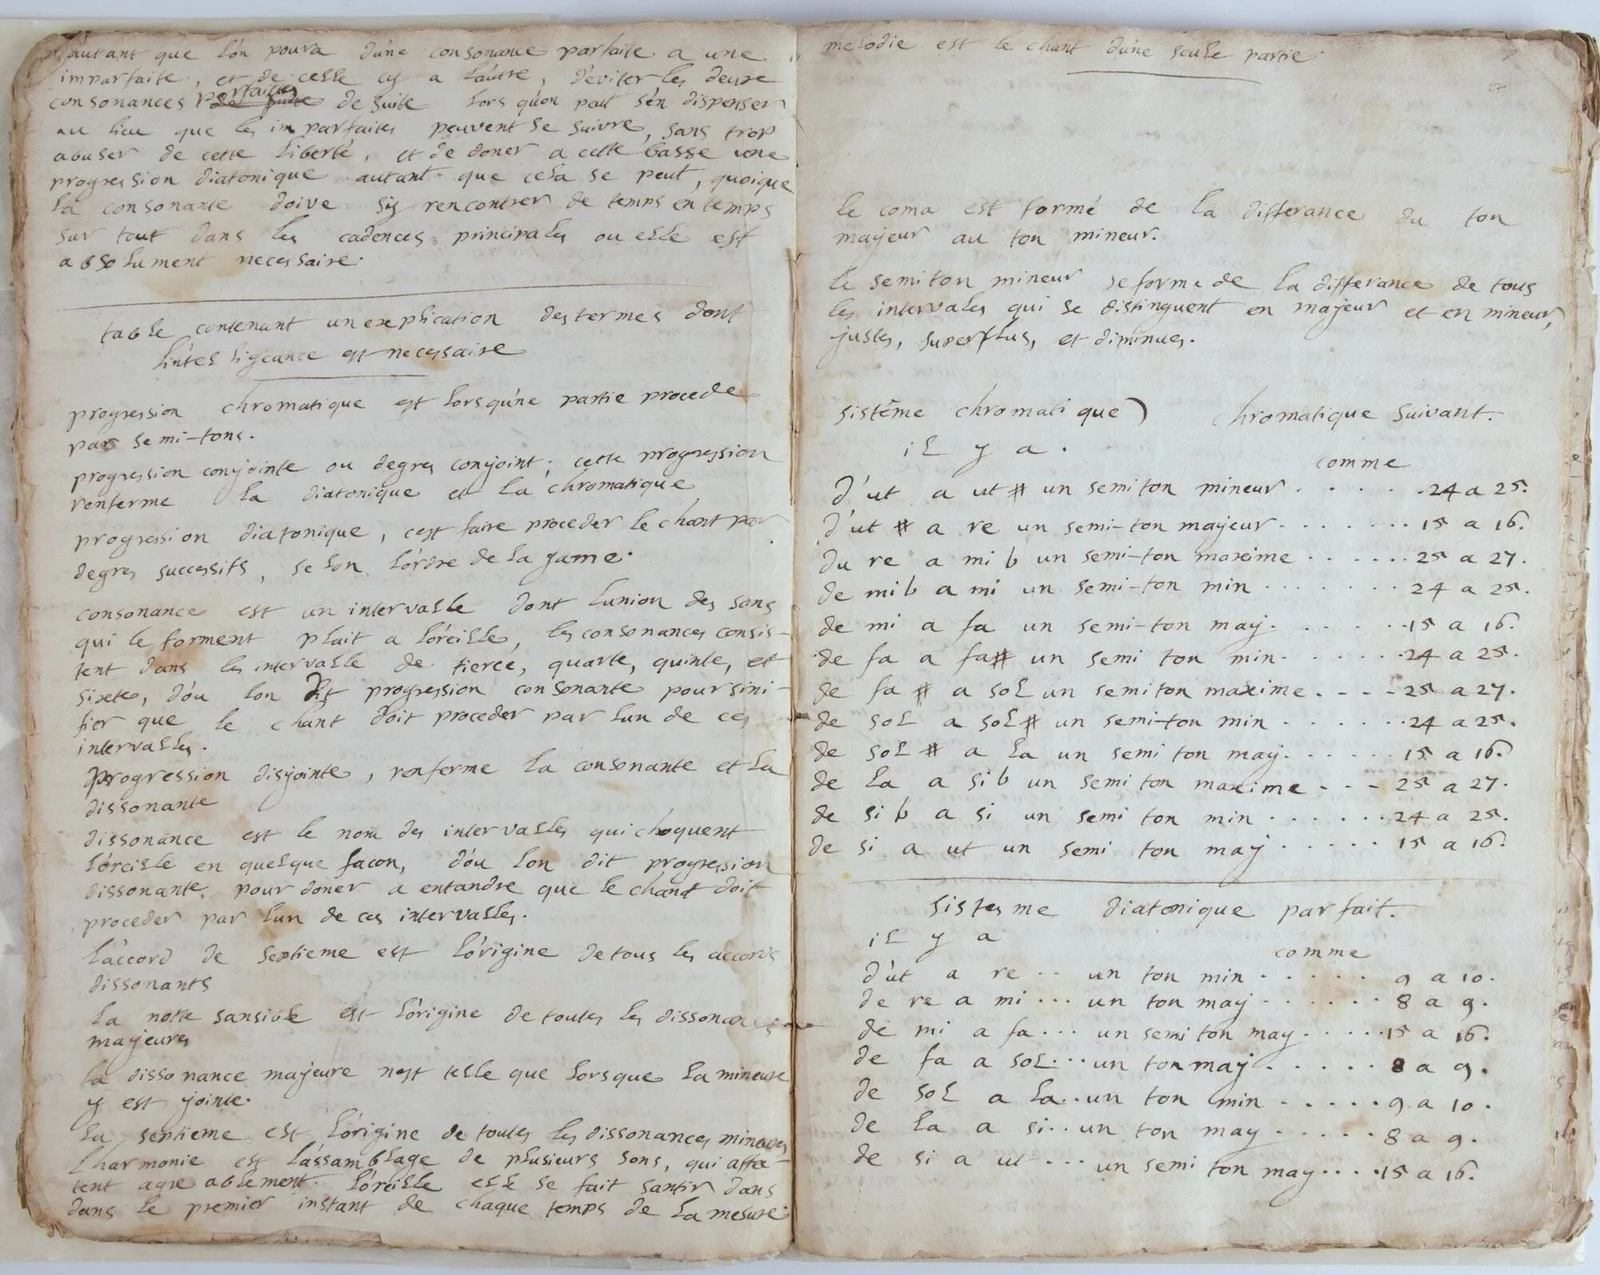 autant que l'on poura d'une consonance parfaite a une
imparfaite, et de celle cy a l'autre, d'eviter les deux
consonances parfaites de suite lors qu'on peut s'en dispenser
au lieu que les imparfaites peuvent se suivre, sans trop
abuser de cette liberté, et de doner a cette basse une
progression diatonique autant que cela se peut, quoique
la consonante doive s'y rencontrer de temps en temps
sur tout dans les cadences principales ou elle est
absolument necessaire.
table contenant un explication des termes dont
l'intelligeance est necessaire
progression chromatique est lorsqu'une partie procede
par semi-tons.
progression conjointe ou degres conjoint; cette progression
renferme la diatonique et la chromatique
progression diatonique, c'est faire proceder le chant par
degres successifs, selon l'ordre de la game.
consonance est un intervalle dont l'union des sons
qui le forment plait a l'oreille, les consonances consis-
tent dans les intervalle de tierce, quarte, quinte, et
sixte, d'ou l'on dit progression consonante pour sini-
fier que le chant doit proceder par l'un de ces
intervalles.
progression disjointe, renferme la consonante et la
dissonante
dissonance est le nom des intervalles qui choquent
l'oreille en quelque facon, d'ou l'on dit progression
dissonante, pour doner a entandre que le chant doit
proceder par l'un de ces intervalles.
l'accord de septieme est l'origine de tous les accords
dissonants
la notte sansible est l'origine de toutes les dissonances
majeures
la dissonance majeure n'est telle que lorsque la mineure
y est jointe.
la septieme est l'origine de toutes les dissonances mineures
l'harmonie est l'assamblage de plusieurs sons, qui affe-
tent agreablement l'oreille elle se fait santir dans
dans le premier instant de chaque temps de la mesure
melodie est le chant d'une seule partie.
le coma est formé de la differance du ton
majeur au ton mineur.
le semiton mineur se forme de la differance de tous
les intervales qui se distinguent en majeur et en mineur,
justes, superflus, et diminues.
sistême chromatique) chromatique suivant.
il y a.
comme
d'ut a ut# un semiton mineur . . . . . 24 a 25.
d'ut # a re un semi-ton majeur . . . . . . . 15 a 16.
du re a mi b un semi-ton maxime . . . . . . 25 a 27.
de mi b a mi un semi-ton min . . . . . . . 24 a 25.
de mi a fa un semi-ton maj. . . . . . . 15 a 16.
de fa a fa# un semi ton min . . . . . . 24 a 25.
de fa # a sol un semiton maxime . - - - 25 a 27.
de sol a sol# un semi-ton min . . . . . . 24 a 25.
de sol # a la un semi ton maj . . . . . . 15 a 16.
de la a si b un semi ton maxime - - - 25 a 27.
de si b a si un semi ton min . . . . . . 24 a 25.
de si a ut un semi ton maj . . . . . 15 a 16.
sistesme diatonique parfait.
il y a
comme
d'ut a re . . un ton min . . . . . 9 a 10.
de re a mi . . . un ton maj . . . . . . 8 a 9.
de mi a fa . . . un semi ton maj . . . . . 15 a 16.
de fa a sol . . . un ton maj . . . . . . 8 a 9.
de sol a la . . un ton min . . . . . . 9 a 10.
de la a si . . un ton maj . . . . . . 8 a 9.
de si a ut . . . un semi ton maj . . . . 15 a 16.